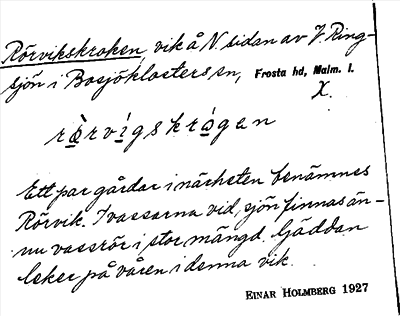 Rörvikskroken, vik å N. sidan av V. Ring-
sjön i Bosjöklosters sn, Frosta hd, Malm. l.
X.
rö̀rvígskrógen
Ett par gårdar i närheten benämnes
Rörvik. I vassarna vid sjön finnas än-
nu vassrör i stor mängd. Gäddan
leker på våren i denna vik.
EINAR HOLMBERG 1927